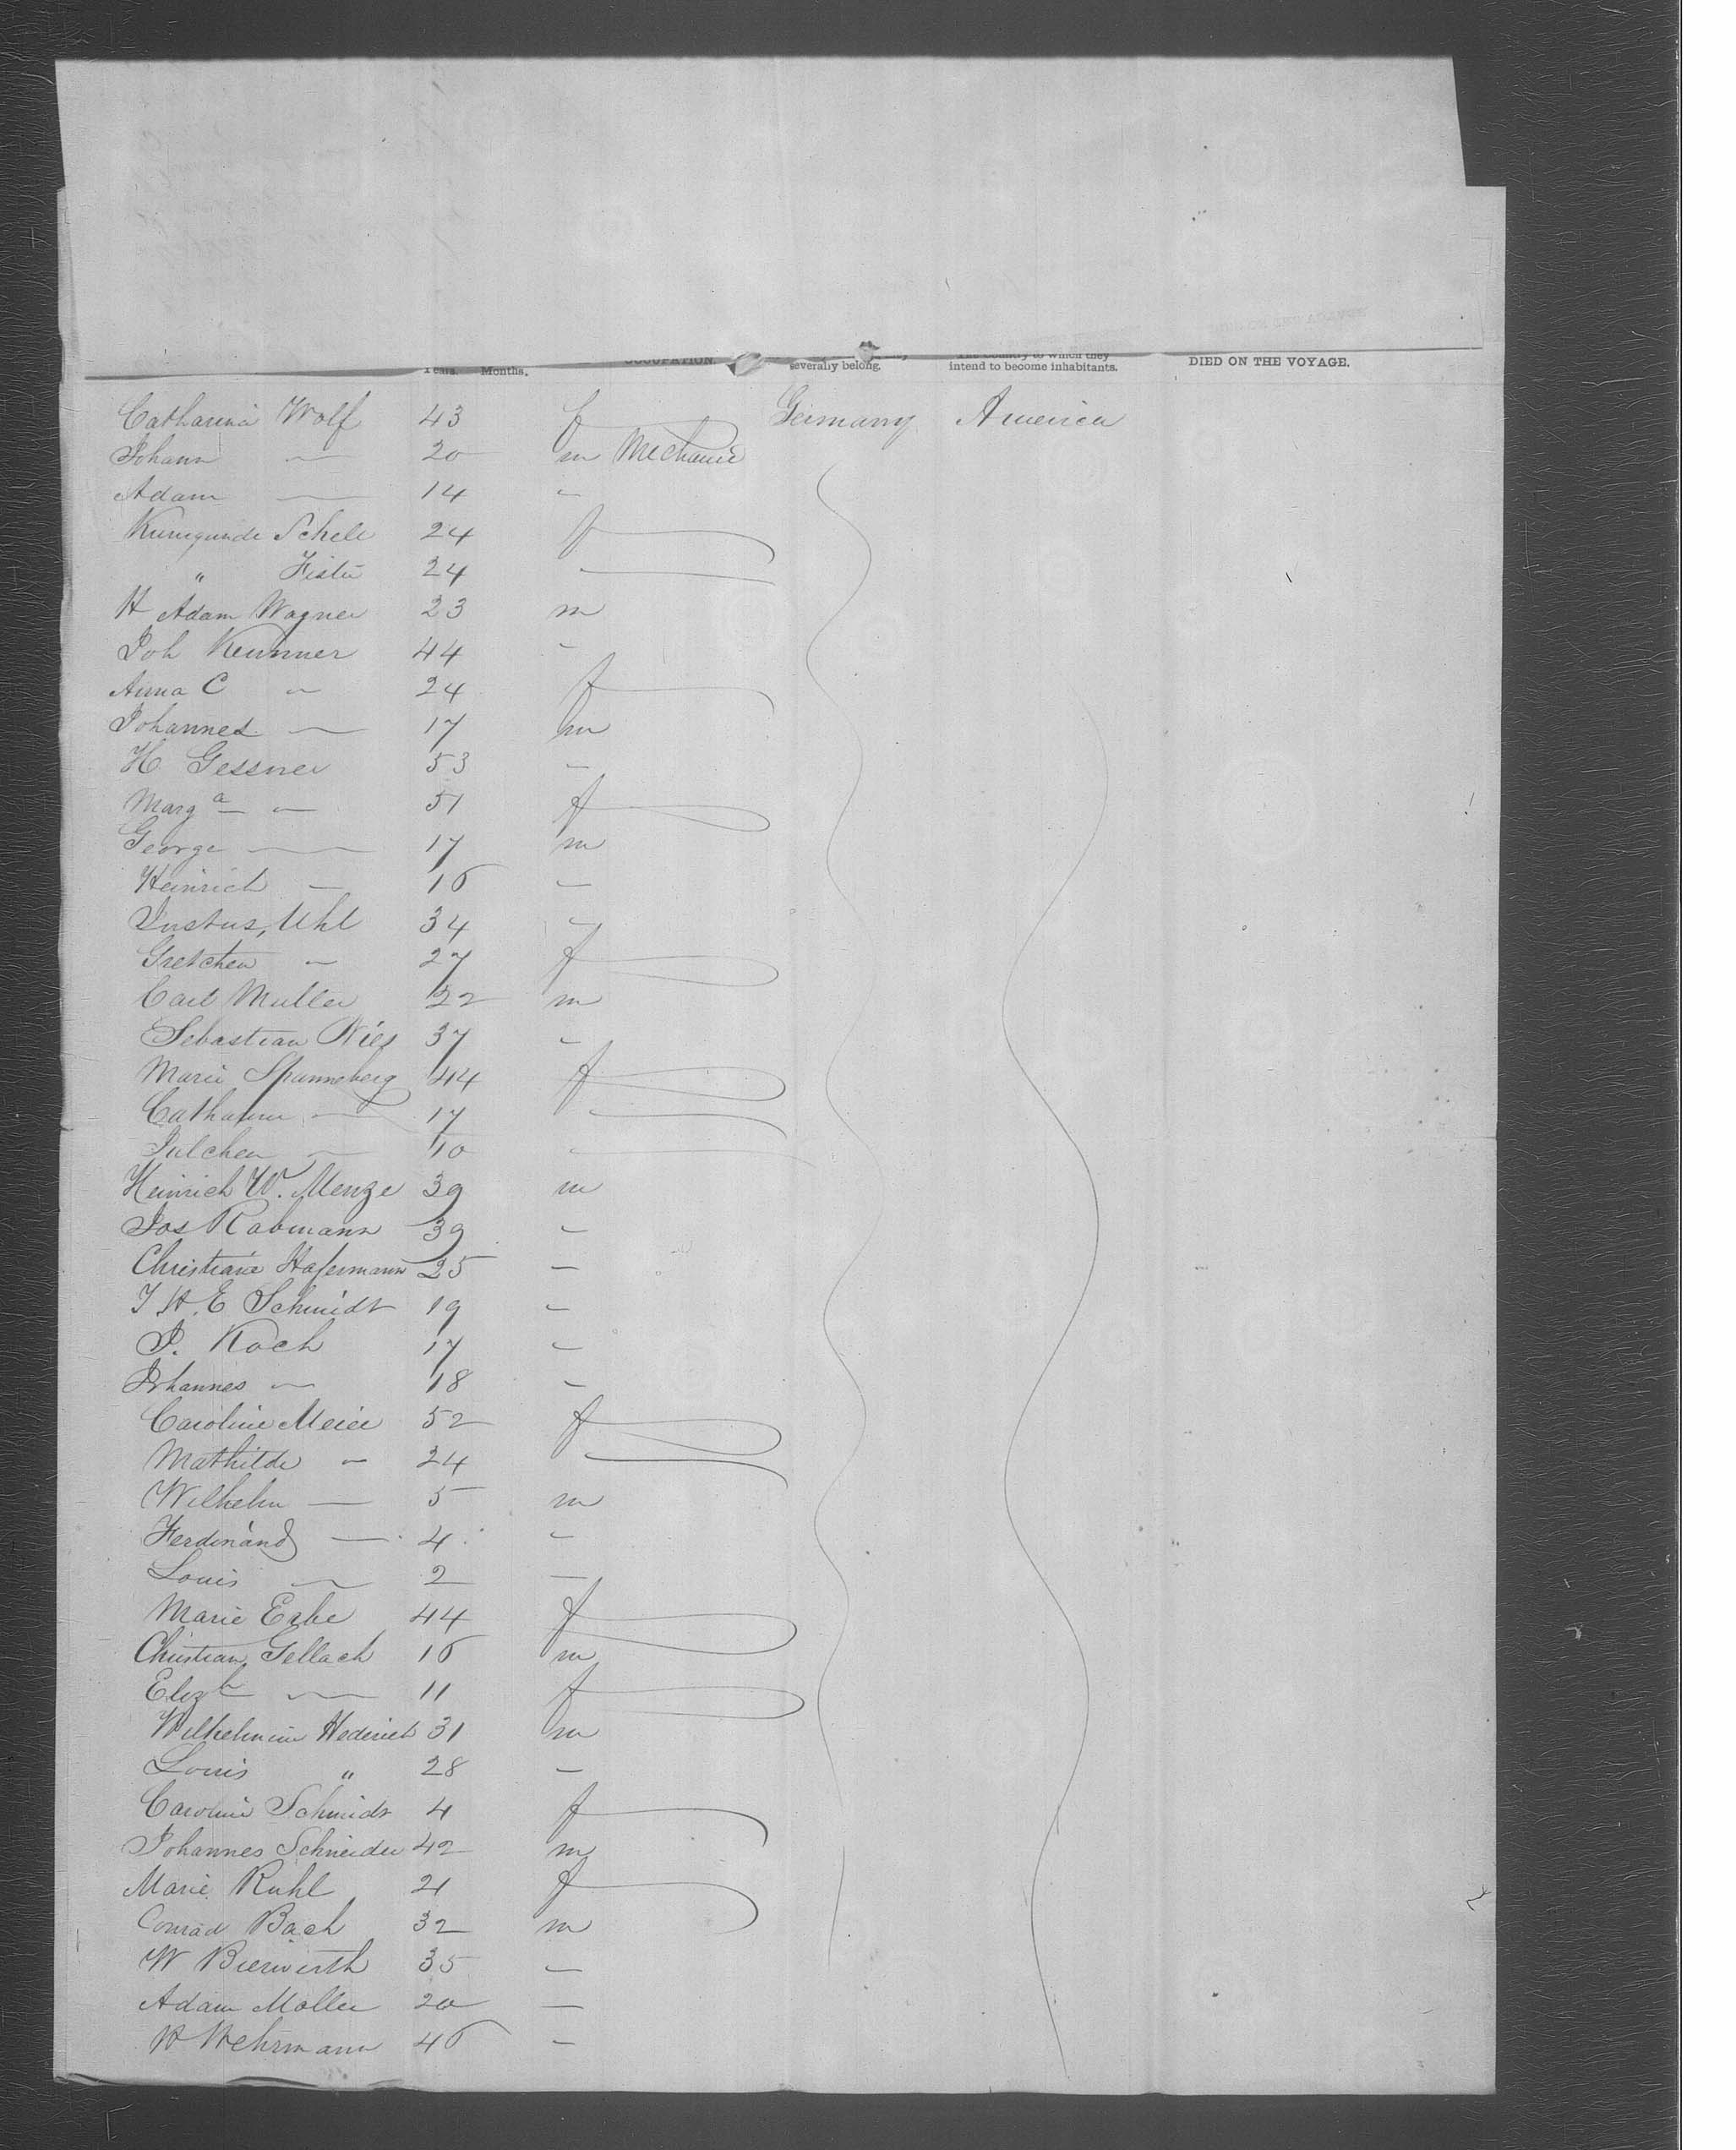 Years. Months. OCCUPATION. severally belong. The Country to which they intend to become inhabitants. DIED ON THE VOYAGE.
Catharina Wolf 43 f Germany America
Johann — 20 m Mechanic
Adam — 14 -
Kunigunde Schell 24 f
" 24 -
H Adam Wagner 23 m
Joh Kemmer 44 -
Anna C - 24 f
Johannes — 17 m
H Gessner 53 -
Marga - 51 f
George — 17 m
Heinrich — 16 -
Justus, Uhl 34 -
Gretchen - 27 f
Carl Muller 22 m
Sebastian Ries 37 -
Marie Spanneberg 44 f
Catharina — 17 -
Julchen — 10 -
Heinrich W. Menze 39 m
Jos Rabmann 39 -
Christian Hafermann 25 -
J. H. E Schmidt 19 -
P. Koch 17 -
Johannes - 18 -
Caroline Meier 52 f
Mathilde - 24 -
Wilhelm — 5 m
Ferdinand — 4 -
Louis — 2 -
Marie Erbe 44 f
Christian Gellach 16 m
Elizh — 11 f
Wilhelmine Hederich 31 m
Louis " 28 -
Caroline Schmidt 4 f
Johannes Schneider 42 m
Marie Ruhl 21 f
Conrad Bach 32 m
W Bierwirth 35 -
Adam Moller 20 -
H Wehrmann 46 -